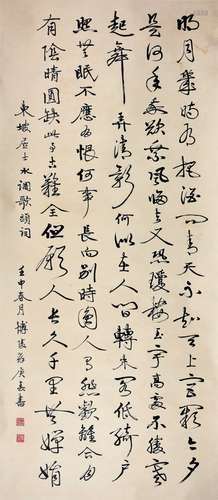 明月幾時有把酒問青天不知天上宮闕今夕
是何年我欲乘風歸去又恐瓊樓玉宇高處不勝寒
起舞弄清影何似在人間轉朱閣低綺戶
照無眠不應有恨何事長向別時圓人有悲歡離合月
有陰晴圓缺此事古難全但願人長久千里共嬋娟
東坡居士水調歌頭詞
壬申春月博陵